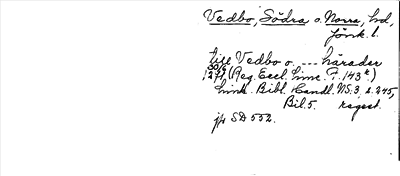 Vedbo, Södra o. Norra, hd,
Jönk. l.
till Vedbo o. --- härader
30/6 1271 (Reg. Eccl. Linc. F. 143v)
Link. Bibl. Handl. NS: 3, s. 245,
Bil. 5. regest.
jfr SD 552.